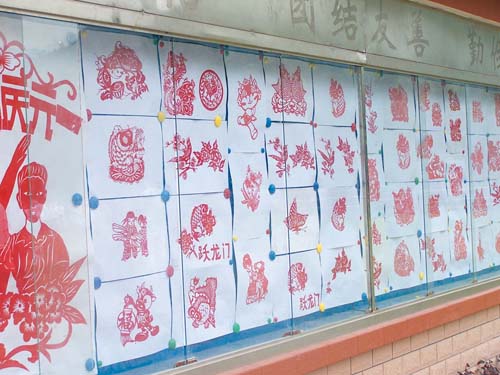 团结友善 勤
庆元
跃龙门
跃龙门